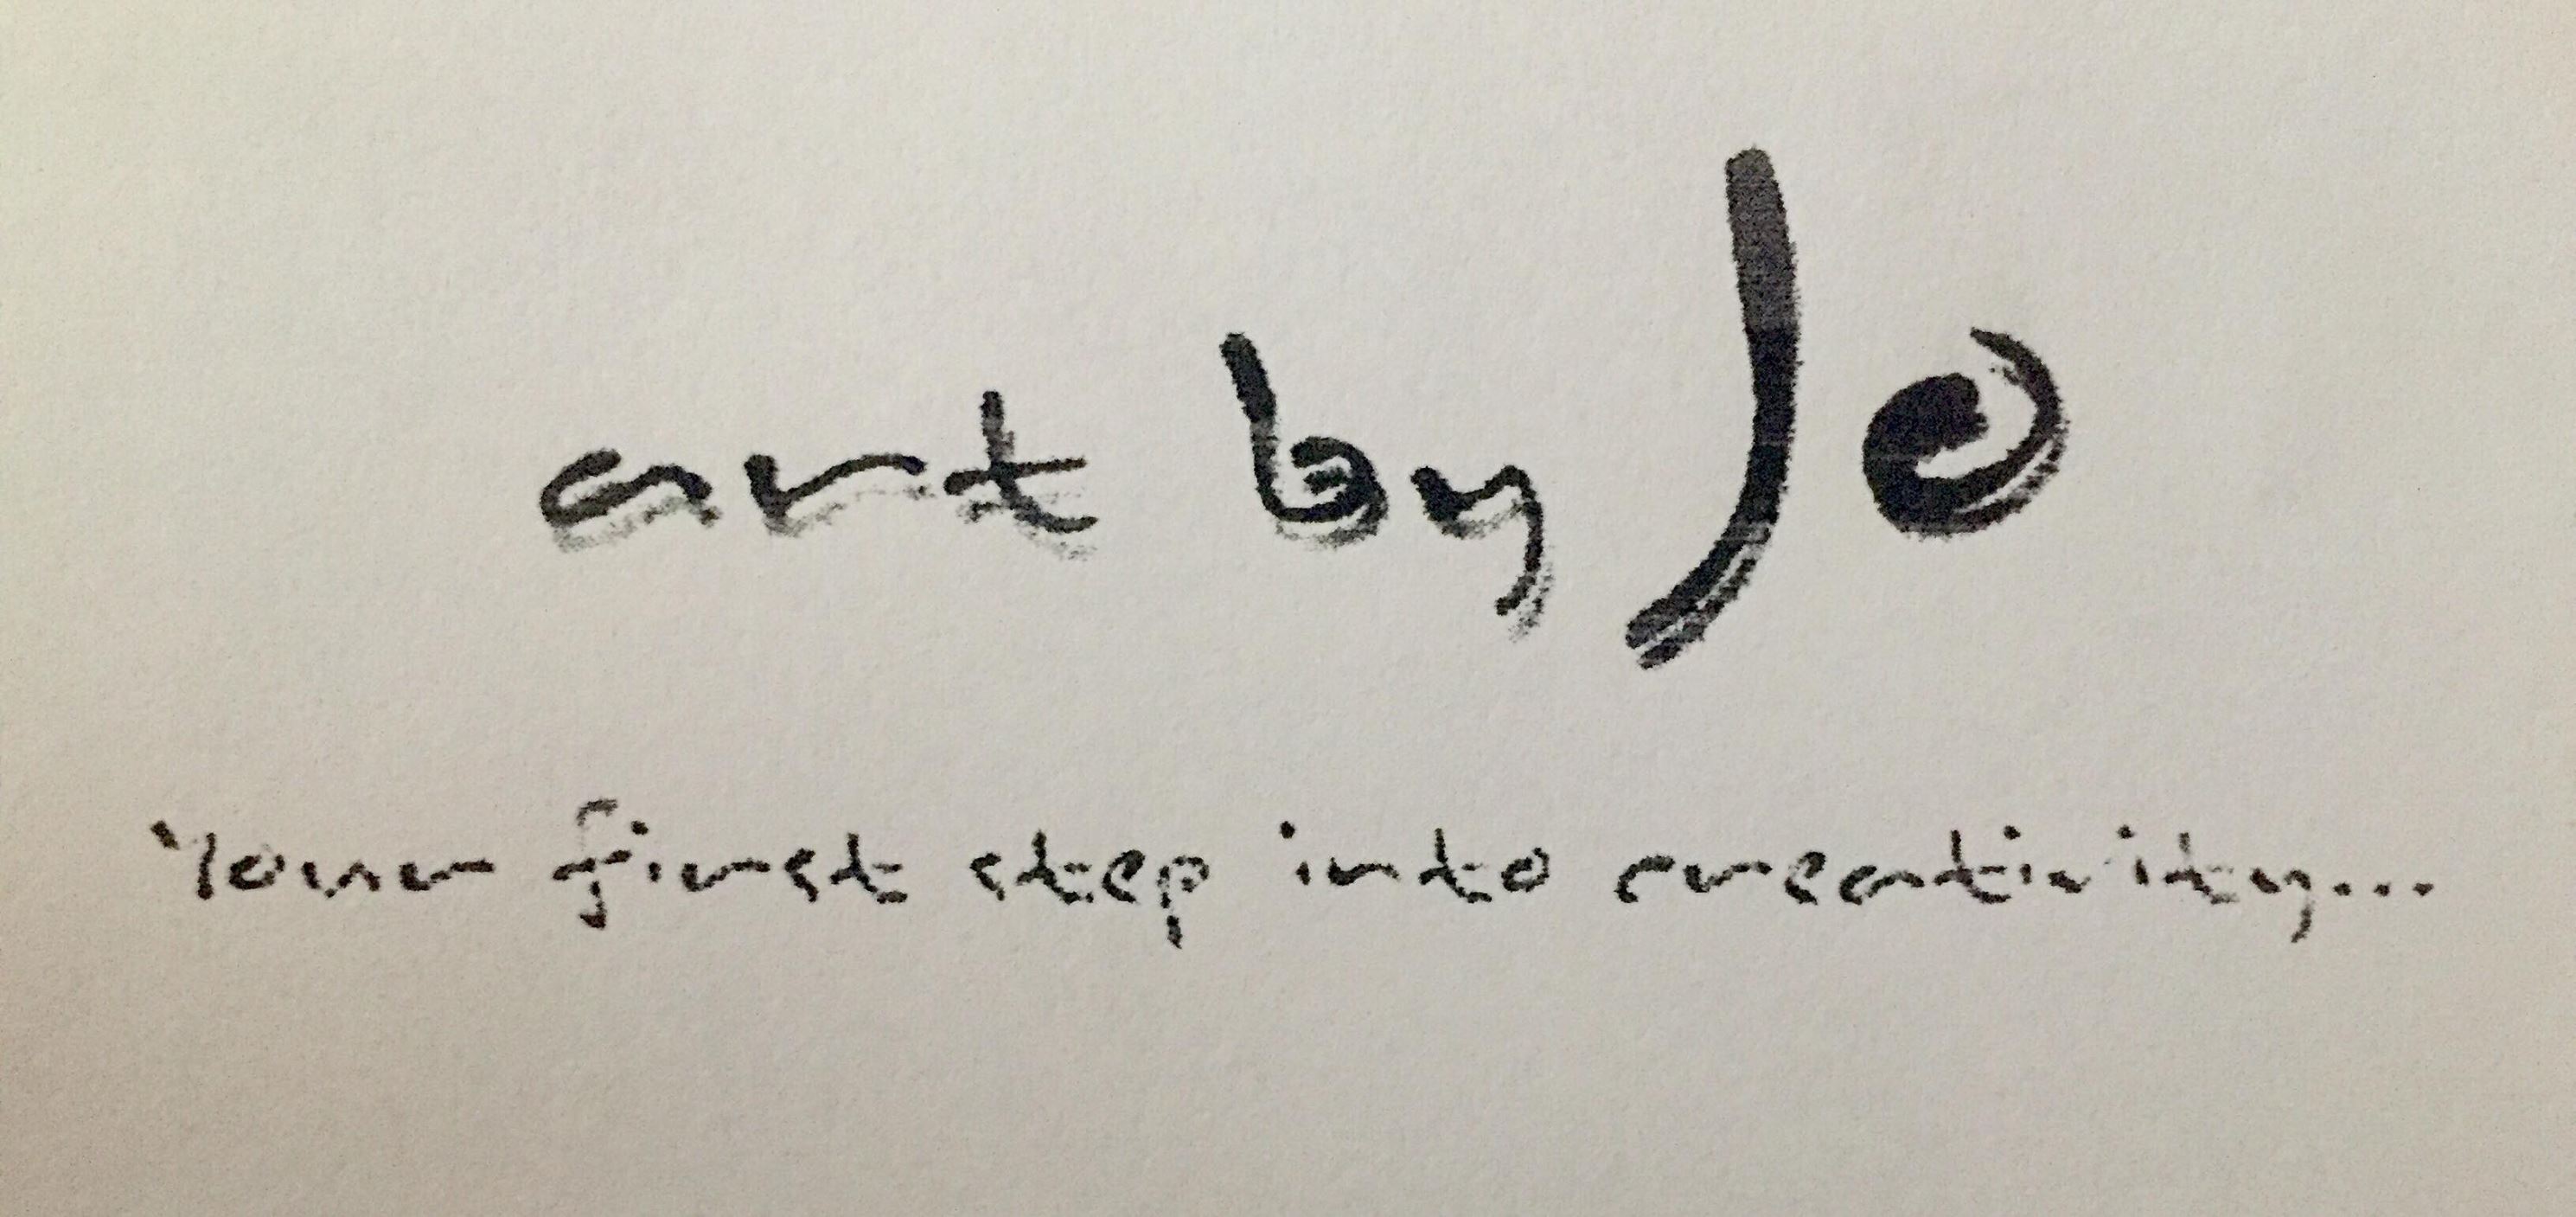 art by Jo
Your first step into creativity...